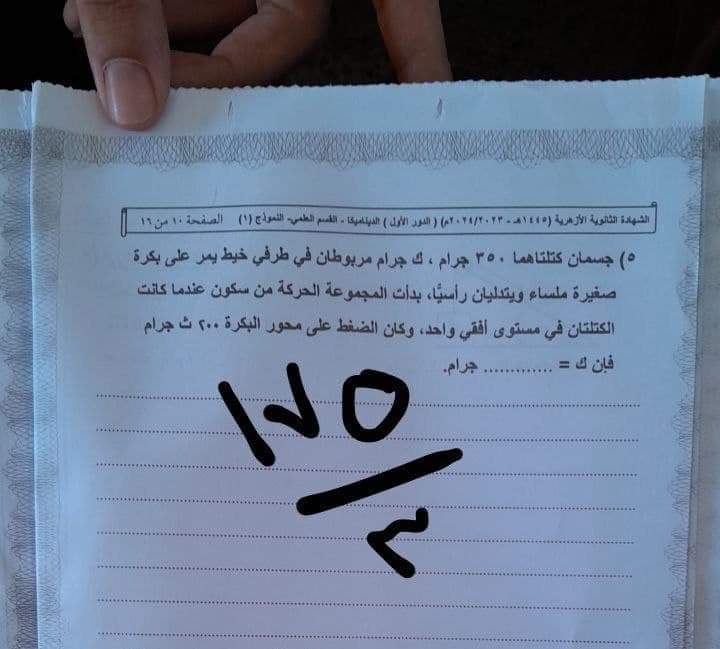 الشهادة الثانوية الأزهرية (١٤٤٥هـ - ٢٠٢٤/٢٠٢٣م) ( الدور الأول ) الديناميكا - القسم العلمي- النموذج (١) الصفحة ١٠ من ١٦
٥) جسمان كتلتاهما ٣٥٠ جرام ، ك جرام مربوطان في طرفي خيط يمر على بكرة
صغيرة ملساء ويتدليان رأسيًّا، بدأت المجموعة الحركة من سكون عندما كانت
الكتلتان في مستوى أفقي واحد، وكان الضغط على محور البكرة ٢٠٠ ث جرام
فإن ك = ............. جرام.
١٧٥
٢